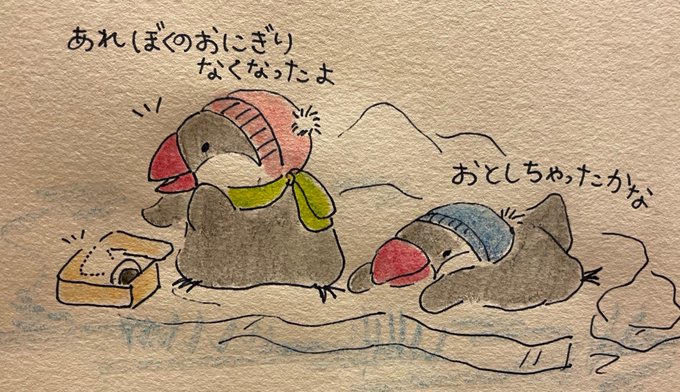 あれ ぼくのおにぎり
なくなったよ
おとしちゃったかな